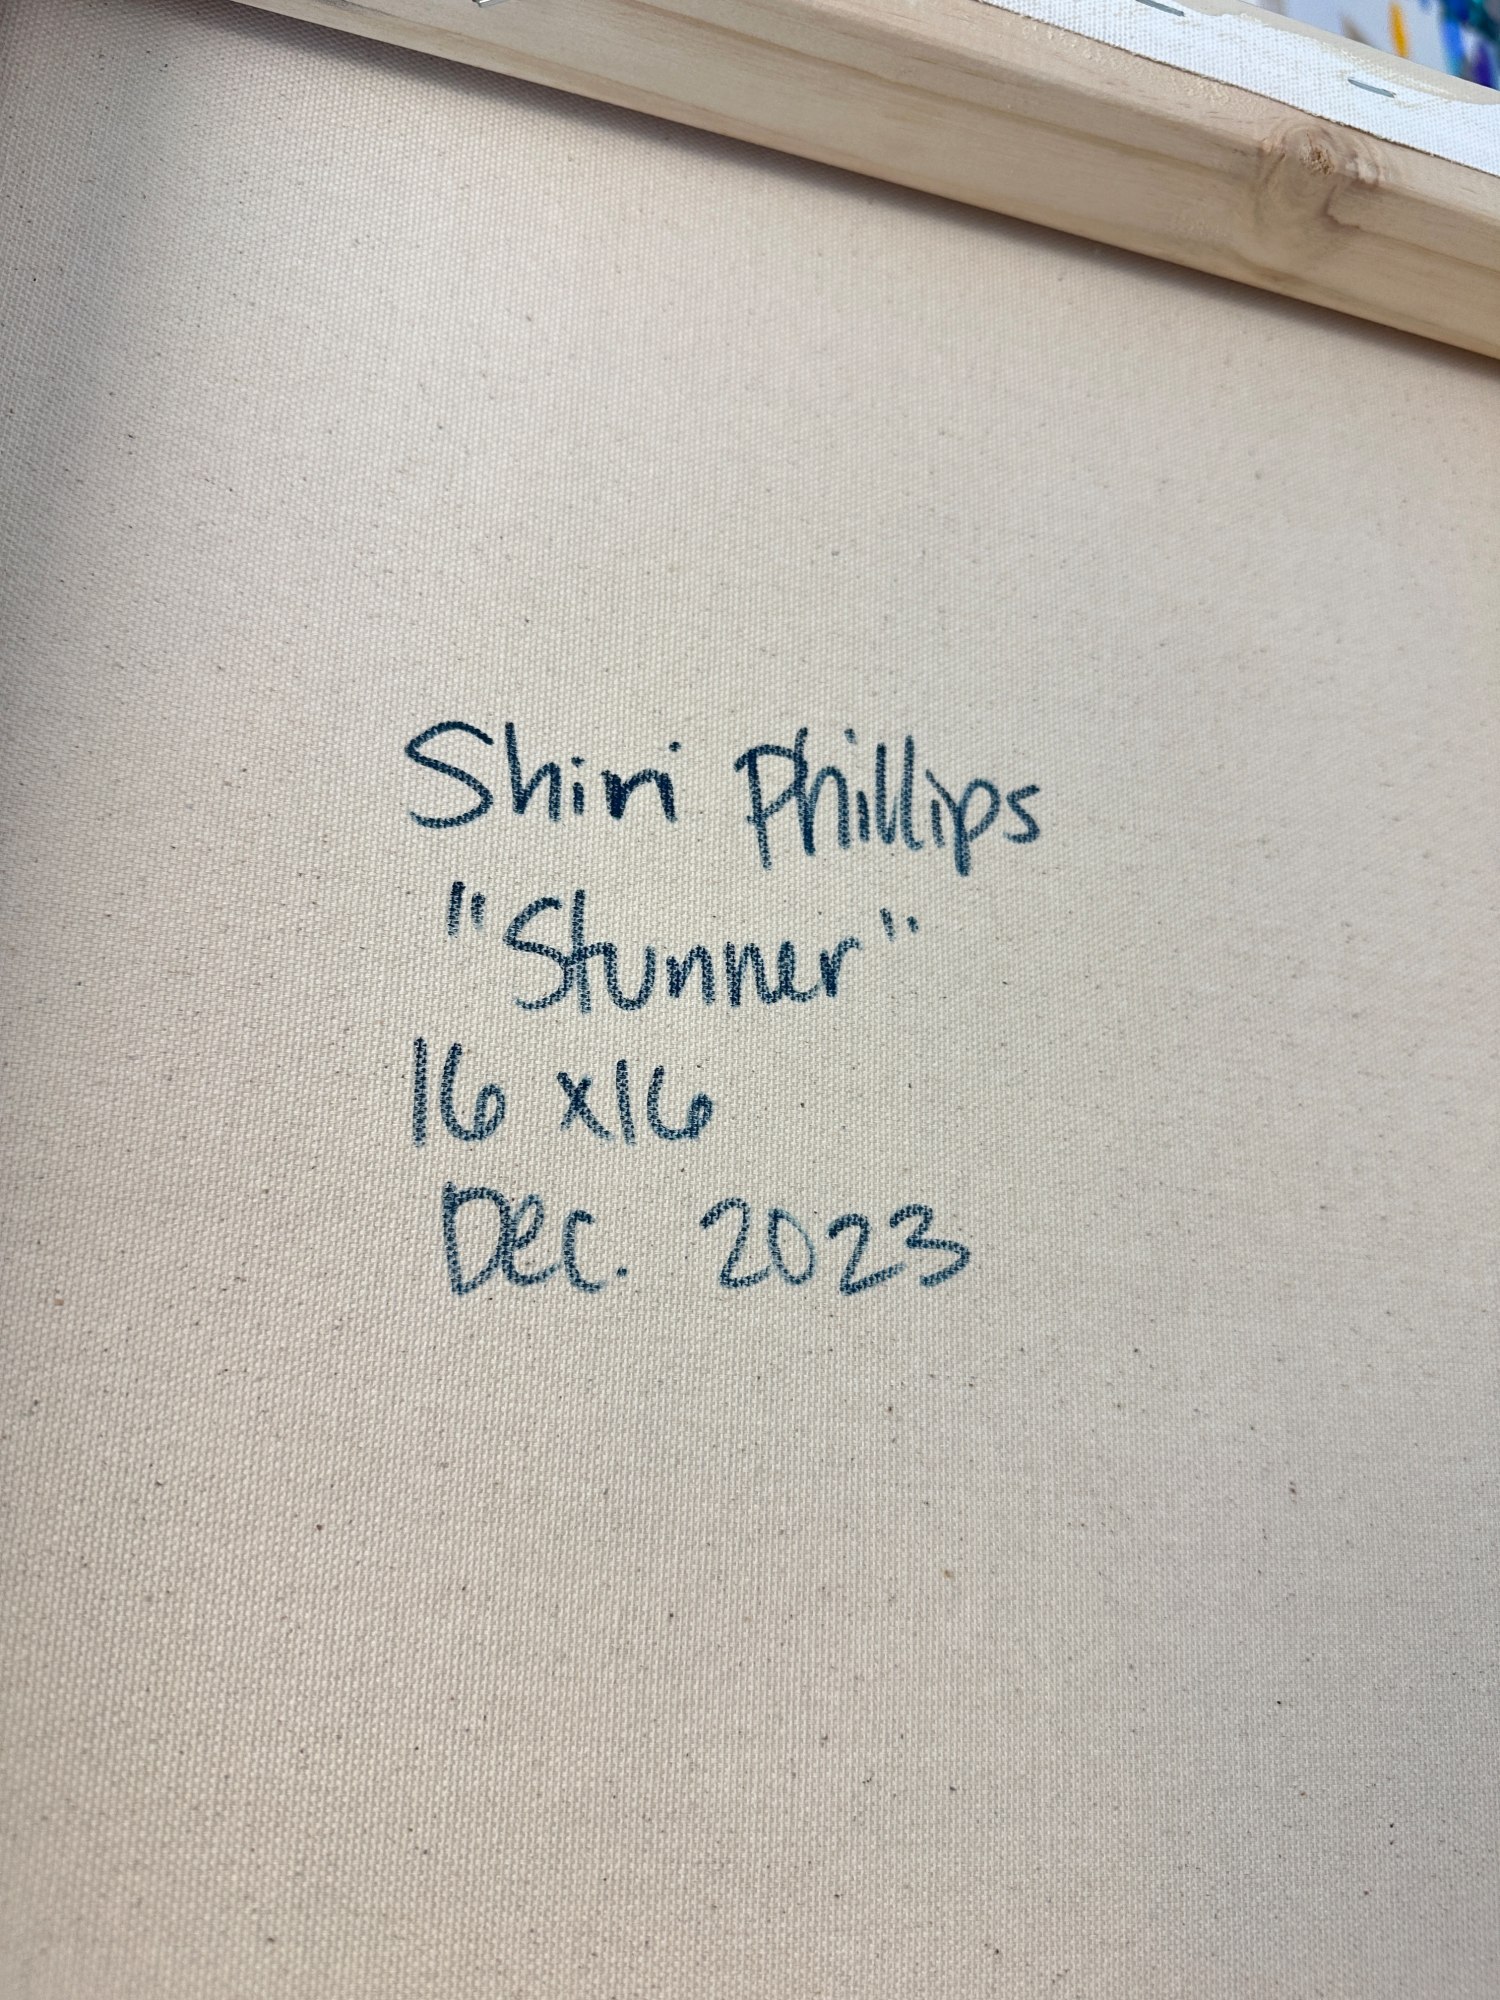 Shiri Phillips
"Stunner"
16 x16
Dec. 2023